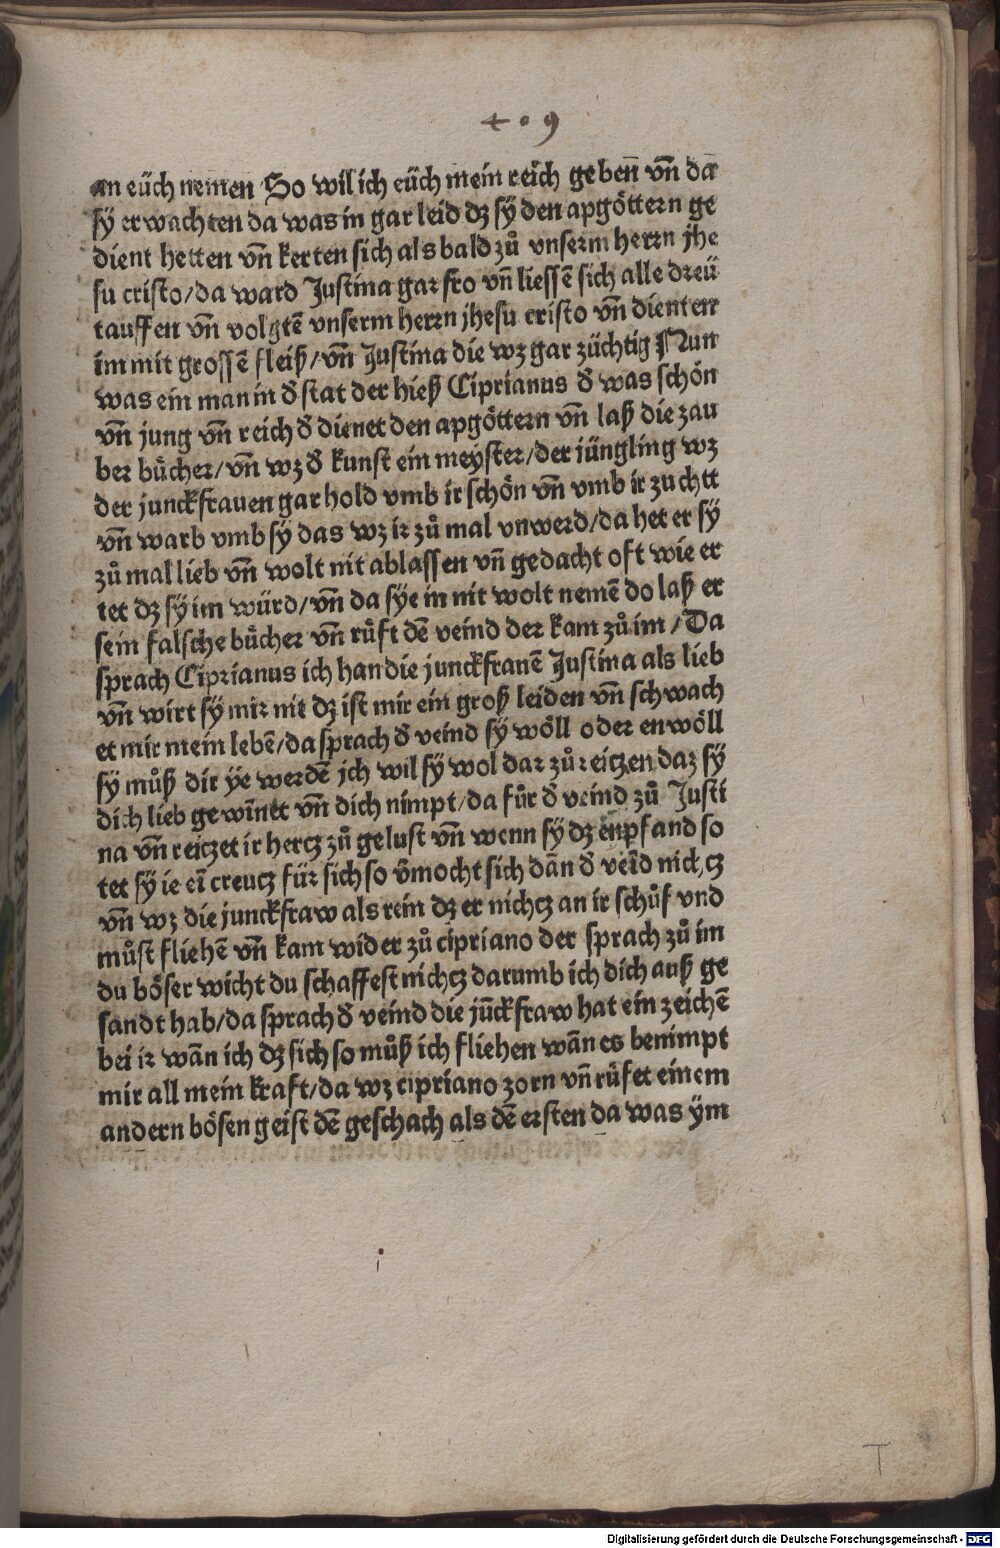 409
an eüch nemen So wil ich eüch mein reich geben̄ vn̄ da
sÿ erwachten da was in gar leid dz sÿ den apgöttern ge
dient hetten vn̄ kerten sich als bald zů vnserm herrn jhe
su cristo/da ward Justina gar fro vn̄ liessē sich alle dreü
tauffen vn̄ volgtē vnserm herrn jhesu cristo vn̄ dienten
im mit grossē fleiß/vn̄ Justina die wz gar züchtig Nun
was ein man in d̕ stat der hieß Ciprianus d̕ was schön
vn̄ jung vn̄ reich d̕ dienet den apgöttern vn̄ laß die zau
ber bücher/vn̄ wz d̕ kunst ein meyster/der jüngling wz
der junckfrauen gar hold vmb ir schön vn̄ vmb ir zuchtt
vn̄ warb vmb sÿ das wz ir zů mal vnwerd/da het er sÿ
zů mal lieb vn̄ wolt nit ablassen vn̄ gedacht oft wie er
tet dz sÿ im würd/vn̄ da sÿe in nit wolt nemē do laß er
sein falsche bücher vn̄ růft dē veind der kam zů im/Da
sprach Ciprianus ich han die junckfrauē Justina als lieb
vn̄ wirt sÿ mir nit dz ist mir ein groß leiden vn̄ schwach
et mir mein lebē/da sprach d̕ veind sÿ wöll oder enwöll
sÿ můß dir ÿe werdē jch wil sÿ wol dar zů reitzen daz sÿ
dich lieb gewīnet vn̄ dich nimpt/da fůr d̕ veind zů Justi
na vn̄ reitzet ir hertz zů gelust vn̄ wenn sÿ dz enpfand so
tet sÿ ie eī creutz für sich so v̄mocht sich dān d̕ veīd nichtz
vn̄ wz die junckfraw als rein dz er nichtz an ir schůf vnd
můst fliehē vn̄ kam wider zů cipriano der sprach zů im
du böser wicht du schaffest nichtz darumb ich dich auß ge
sandt hab/da sprach d̕ veind die jūckfraw hat ein zeichē
bei ir wān ich dz sich so můß ich fliehen wān es benimpt
mir all mein kraft/da wz cipriano zorn vn̄ růfet einem
andern bösen geist dē geschach als dē ersten da was ÿm
T
Digitalisierung gefördert durch die Deutsche Forschungsgemeinschaft - DFG